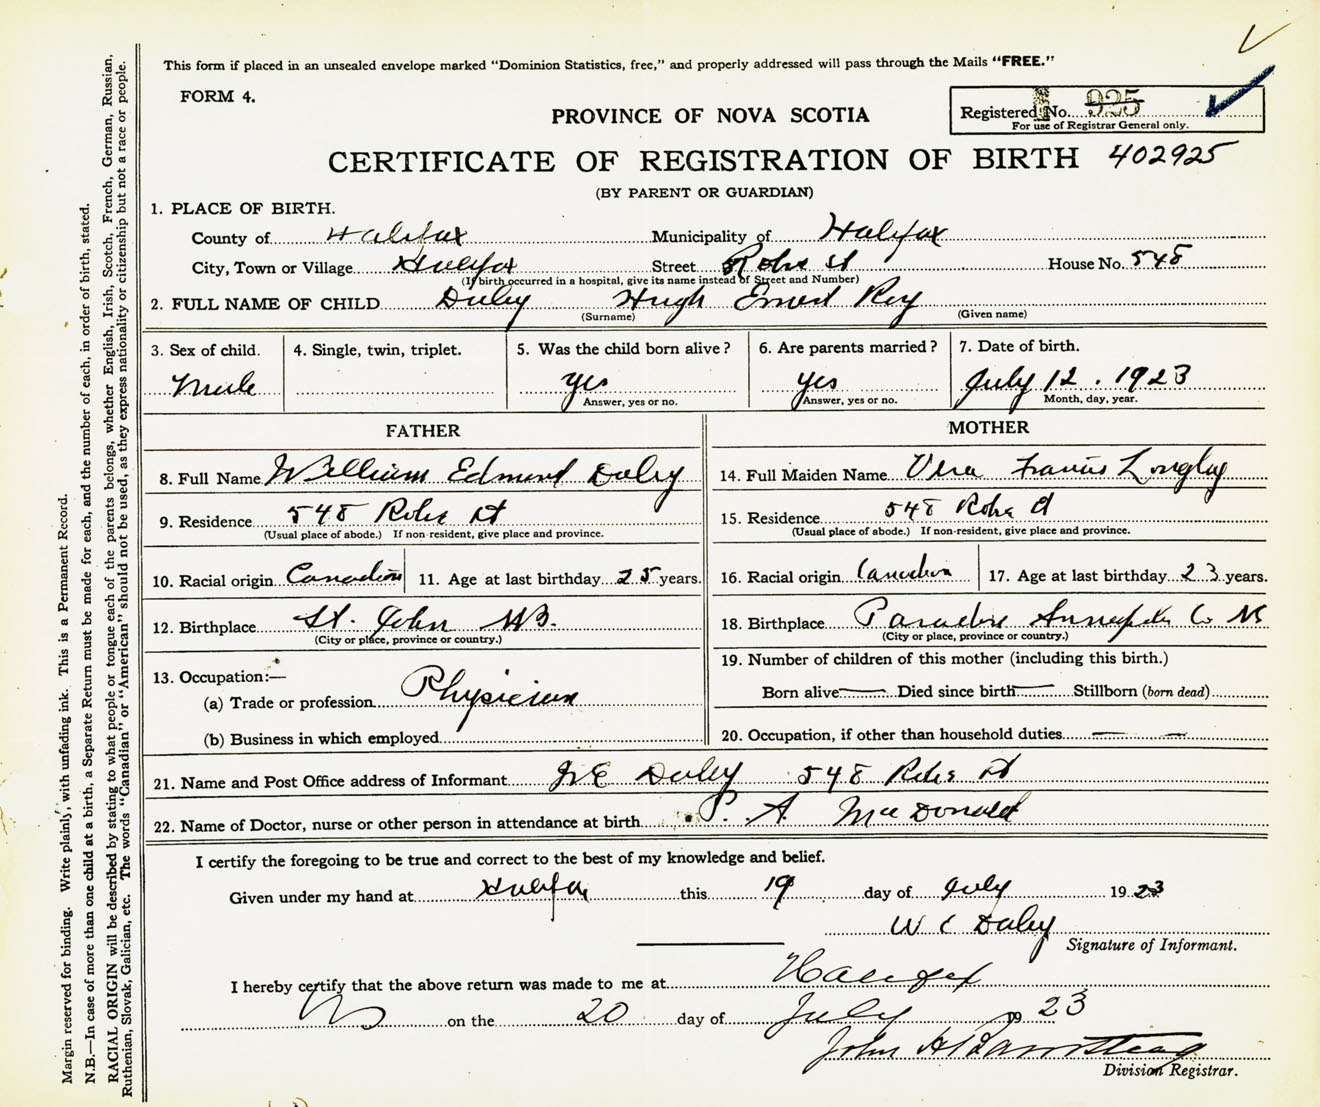 This form if placed in an unsealed envelope marked "Dominion Statistics, free," and properly addressed will pass through the Mails "FREE."
FORM 4.
PROVINCE OF NOVA SCOTIA
Registered No. 925
For use of Registrar General only.
CERTIFICATE OF REGISTRATION OF BIRTH 402925
(BY PARENT OR GUARDIAN)
1. PLACE OF BIRTH.
County of Halifax Municipality of Halifax
City, Town or Village Halifax Street Robie St House No. 548
(If birth occurred in a hospital, give its name instead of Street and Number)
2. FULL NAME OF CHILD Daley Hugh Ernest Roy
(Surname) (Given name)
3. Sex of child. 4. Single, twin, triplet. 5. Was the child born alive? 6. Are parents married? 7. Date of birth.
Male yes yes July 12. 1923
Answer, yes or no. Answer, yes or no. Month, day, year.
FATHER MOTHER
8. Full Name William Edmond Daley 14. Full Maiden Name Vera Francis Longley
9. Residence 548 Robie St 15. Residence 548 Robie St
(Usual place of abode.) If non-resident, give place and province. (Usual place of abode.) If non-resident, give place and province.
10. Racial origin Canadian 11. Age at last birthday 25 years. 16. Racial origin Canadian 17. Age at last birthday 23 years.
12. Birthplace St. John NB. 18. Birthplace Paradise Annapolis Co NS
(City or place, province or country.) (City or place, province or country.)
13. Occupation:— 19. Number of children of this mother (including this birth.)
(a) Trade or profession Physician Born alive — Died since birth — Stillborn (born dead)
(b) Business in which employed 20. Occupation, if other than household duties — —
21. Name and Post Office address of Informant Daley 548 Robie St
22. Name of Doctor, nurse or other person in attendance at birth P. A. MacDonald
I certify the foregoing to be true and correct to the best of my knowledge and belief.
Given under my hand at Halifax this 19 day of July 1923
W E Daley
Signature of Informant.
I hereby certify that the above return was made to me at Halifax
NS on the 20 day of July 1923
John H Barnstead
Division Registrar.
Margin reserved for binding. Write plainly, with unfading ink. This is a Permanent Record.
N.B.—In case of more than one child at a birth, a Separate Return must be made for each, and the number of each, in order of birth, stated.
RACIAL ORIGIN will be described by stating to what people or tongue each of the parents belongs, whether English, Irish, Scotch, French, German, Russian,
Ruthenian, Slovak, Galician, etc. The words "Canadian" or "American" should not be used, as they express nationality or citizenship but not a race or people.